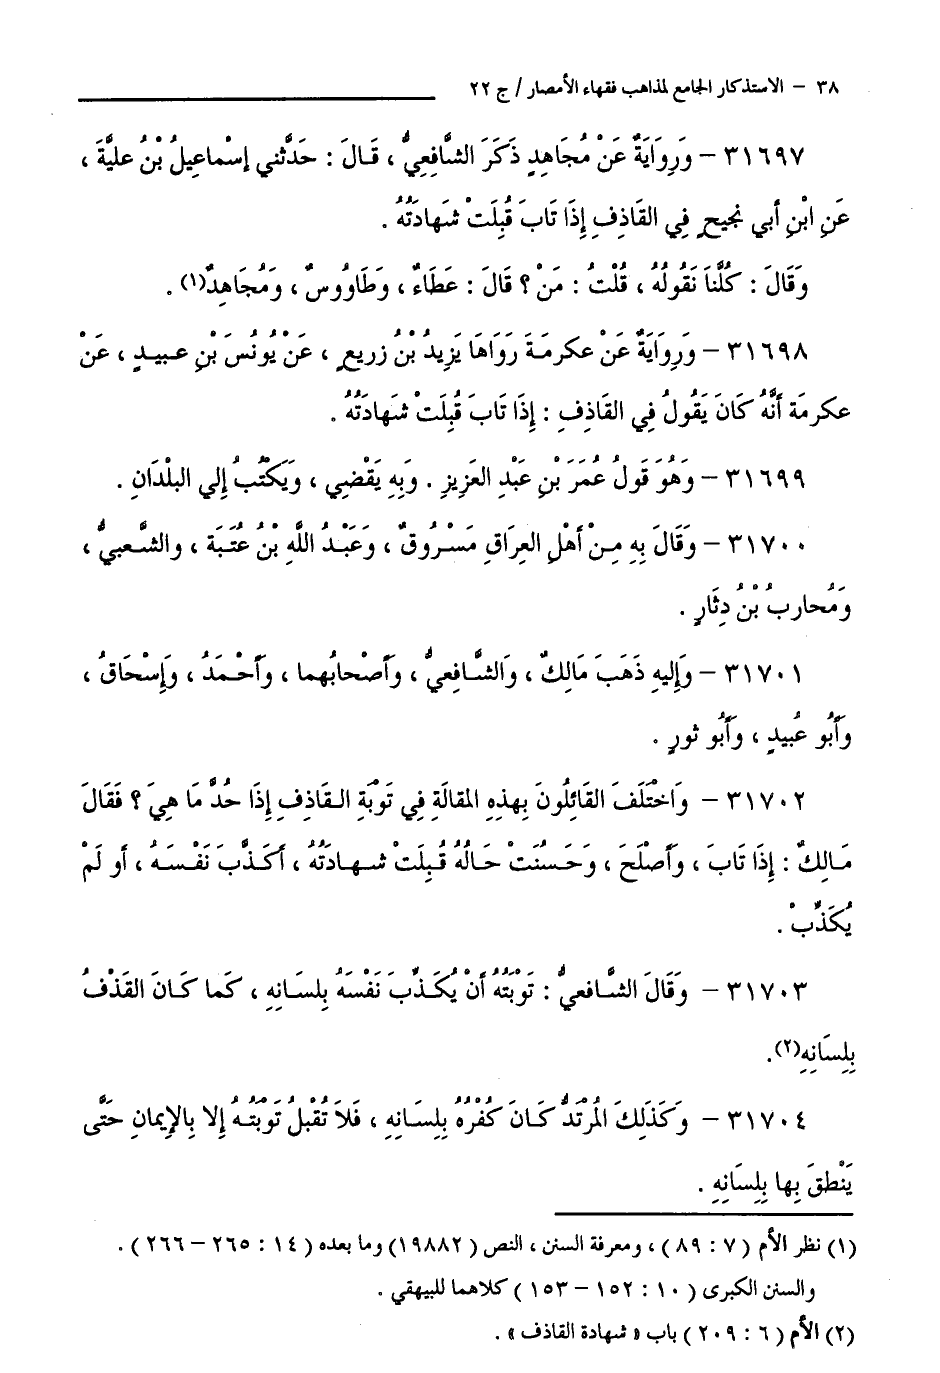 ٣٨ – الاستذكار الجامع لمذاهب فقهاء الأمصار / ج ٢٢
٣١٦٩٧ – وَرِوَايَةٌ عَنْ مُجَاهِدٍ ذَكَرَ الشَّافِعِيُّ ، قَالَ : حَدَّثَنِي إسْماعِيلُ بْنُ عليَّةَ ،
عَنِ ابْنِ أبي نجيحٍ فِي القَاذِفِ إذَا تَابَ قُبِلَتْ شَهادَتُهُ .
وَقَالَ : كُلُّنَا نَقُولُهُ ، قُلْتُ : مَنْ ؟ قَالَ : عَطَاءٌ ، وَطَاوُوسٌ ، وَمُجَاهِدٌ(١) .
٣١٦٩٨ – وَرِوَايَةٌ عَنْ عكرمَةَ رَوَاهَا يَزِيدُ بْنُ زريعٍ ، عَنْ يُونُسَ بْنِ عبيدٍ ، عَنْ
عكرمَة أنَّهُ كَانَ يَقُولُ فِي القَاذِفِ : إذَا تَابَ قُبِلَتْ شَهادَتُهُ .
٣١٦٩٩ – وَهُوَ قَولُ عُمَرَ بْنِ عَبْدِ العَزِيزِ . وَبِهِ يَقْضِي ، وَيَكْتُبُ إلي البلْدَانِ .
٣١٧٠٠ – وَقَالَ بِهِ مِنْ أهْلِ العِرَاقِ مَسْرُوقٌ ، وَعَبْدُ اللَّهِ بْنُ عُتَبَة ، والشَّعبيُّ ،
وَمُحاربُ بْنُ دِثَارٍ .
٣١٧٠١ – وَإليهِ ذَهَبَ مَالِكٌ ، وَالشَّافِعيُّ ، وَأصْحابُهما ، وَأحْمَدُ ، وَإسْحَاقُ ،
وَأَبُو عُبيدٍ ، وَأَبُو ثورٍ .
٣١٧٠٢ – وَاخْتَلَفَ القَائِلُونَ بِهذِهِ المقَالَةِ فِي تَوبَةِ القَاذِفِ إذَا حُدَّ مَا هِيَ ؟ فَقَالَ
مَالِكٌ : إذَا تابَ ، وَأَصْلَحَ ، وَحَسُنَتْ حَالُهُ قُبِلَتْ شهادَتُهُ ، أكَذَّبَ نَفْسَهُ ، أو لَمْ
يُكَذِّبْ .
٣١٧٠٣ – وَقَالَ الشَّافعيُّ : تَوْبَتُهُ أنْ يُكَذِّبَ نَفْسَهُ بِلسَانِهِ ، كَما كَانَ القَذْفُ
بِلِسَانِهِ(٢).
٣١٧٠٤ – وَكَذَلِكَ المُرْتَدُّ كَانَ كُفْرُهُ بِلِسَانِهِ ، فَلاَ تُقْبلُ تَوبَتُهُ إلا بِالإيمَانِ حَتَّى
يَنْطقَ بِها بِلِسَانِهِ .
(١) نظر الأم ( ٧ : ٨٩ ) ، ومعرفة السنن ، النص (١٩٨٨٢) وما بعده ( ١٤ : ٢٦٥ – ٢٦٦ ) .
والسنن الكبرى ( ١٠ : ١٥٢ – ١٥٣ ) كلاهما للبيهقي .
(٢) الأم ( ٦ : ٢٠٩ ) باب « شهادة القاذف » .